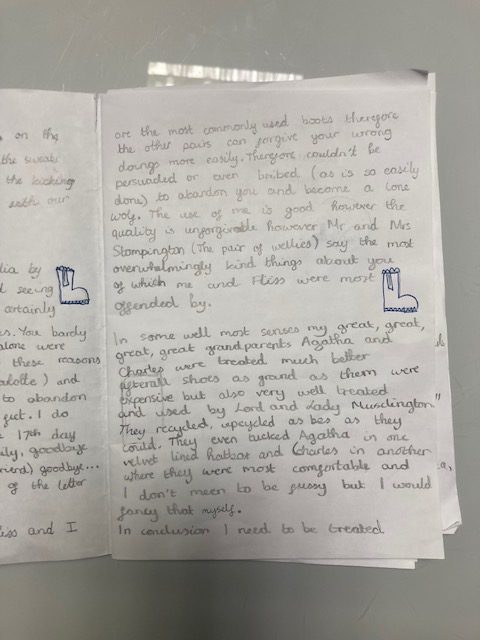 on the
the sweat
the kicking
with our
by
seeing
certainly
You bardy
alone were
these reasons
) and
to abandon
I do
17th day
goodbye
) goodbye...
of the letter
and I
are the most commonly used boots therefore
the other pairs can forgive your wrong
doings more easily. Therefore couldn't be
persuaded or even bribed (as is so easily
done) to abandon you and become a lone
wolf. The use of me is good however the
quality is unforgivable however Mr and Mrs
Stompington (The pair of wellies) say the most
overwhelmingly kind things about you
of which me and Fliss were most
offended by.
In some well most senses my great, great,
great, great grandparents Agatha and
Charles were treated much better
afterall shoes as grand as them were
expensive but also very well treated
and used by Lord and Lady
They recycled, upcycled as bes as they
could. They even tucked Agatha in one
velvet lined hatbox and Charles in another
where they were most comfortable and
I don't meen to be fussy but I would
fancy that myself.
In conclusion I need to be treated